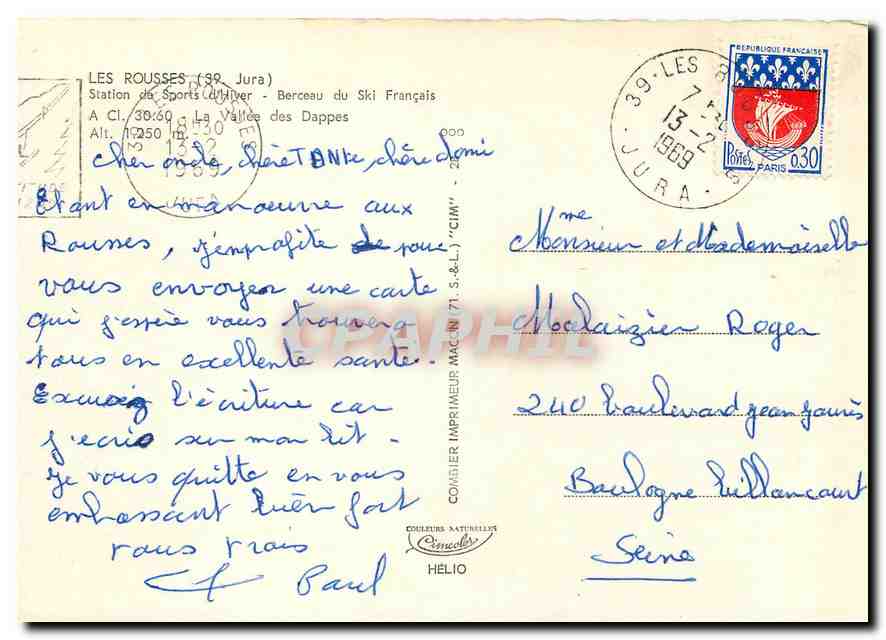 LES ROUSSES (39. Jura)
Station de Sports d'Hiver - Berceau du Ski Français
A Cl. 30.60 - La Vallée des Dappes
Alt. 1.250 m.
cher oncle, chère TANte, chère domi
Etant en manoeuvre aux
Rousses, j'enprofite de pour
vous envoyer une carte
qui j'espère vous trouvera
tous en excellente santé.
l'écriture car
j'ecris sur mon lit -
Je vous quitte en vous
embrassant bien fort
tous trois
Paul
39 - LES ROUSSES
18H30
13-2
1969
JURA
COMBIER IMPRIMEUR MACON (71. S.-&-L.) "CIM"
COULEURS NATURELLES
Cimcolor
HÉLIO
CPAPHIL
39 - LES R
7
13-2
1969
JURA
REPUBLIQUE FRANCAISE
Postes
0,30
PARIS
Mme
Monsieur et Mademoiselle
Malaizier Roger
240 boulevard jean jaurès
Boulogne billancourt
Seine